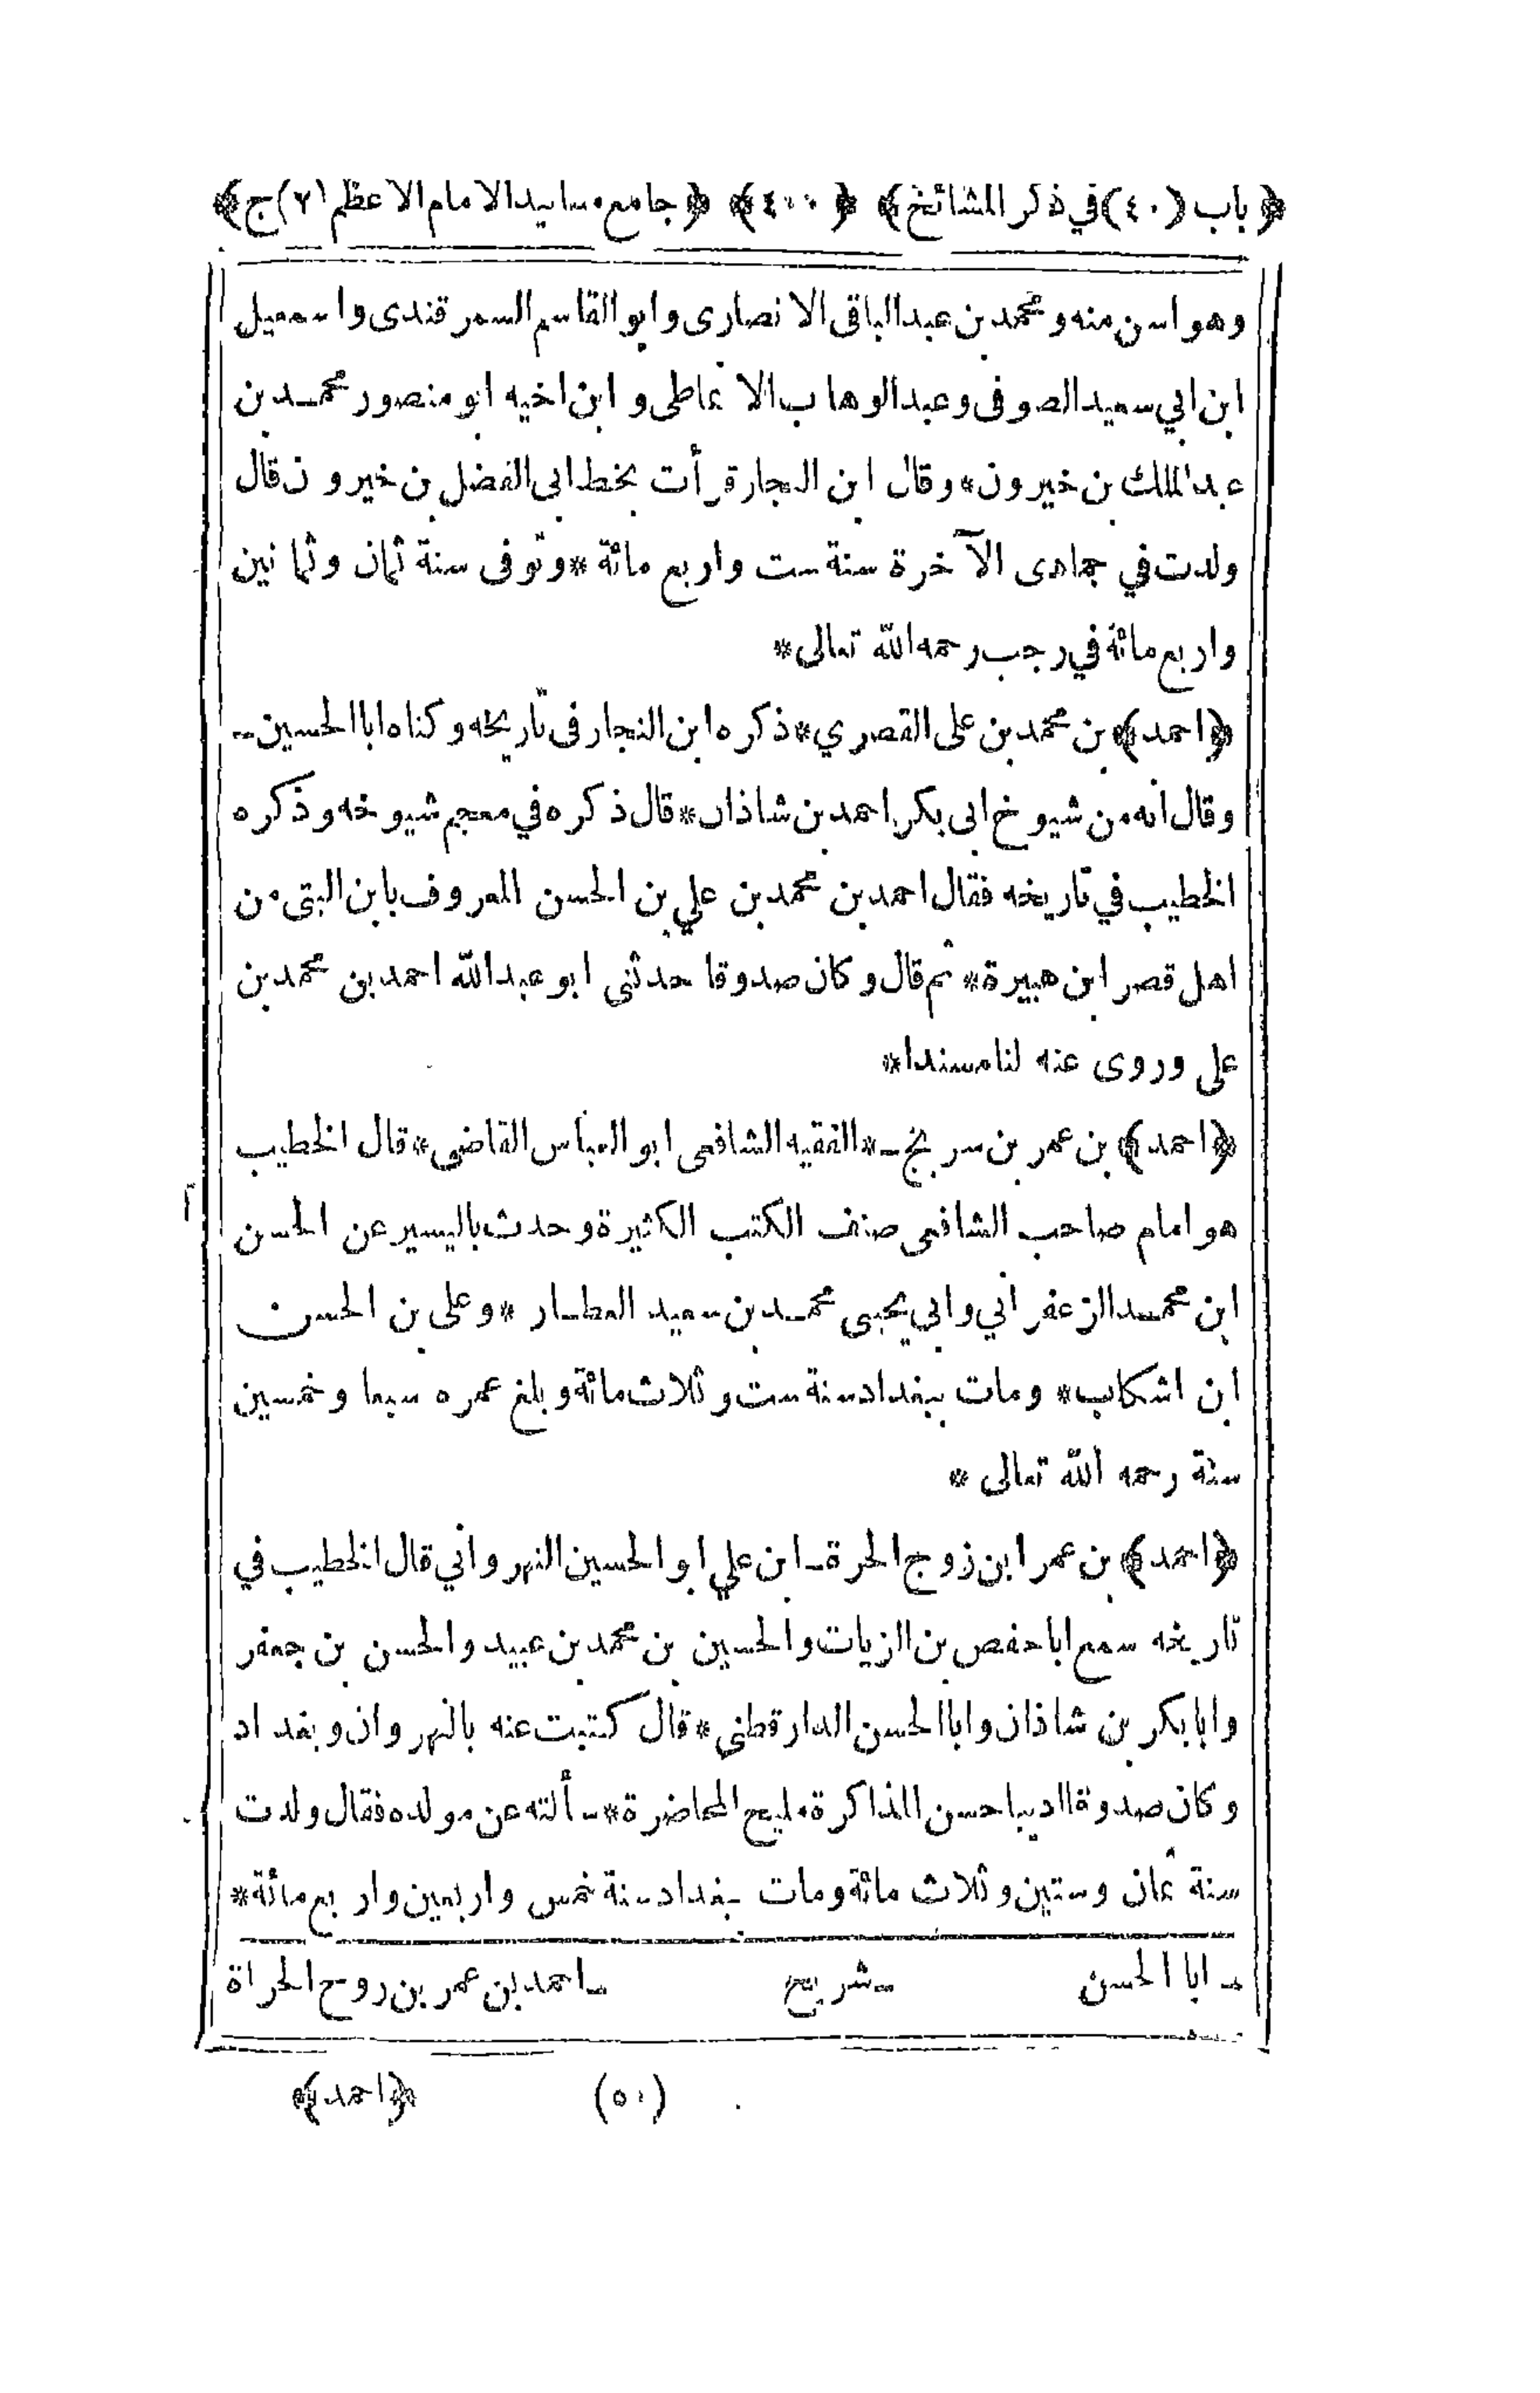 ﴿باب (٤٠) في ذكر المشائخ﴾ ﴿٤٠٠﴾ ﴿جامع مسانيد الامام الاعظم (٢) ج﴾
وهو اسن منه و محمد بن عبد الباقى الانصارى وابو القاسم السمرقندى واسمعيل
ابن ابي سعيد الصوفى وعبد الوهاب الانماطى و ابن اخيه ابو منصور محمد بن
عبد الملك بن خيرون * وقال ابن النجار قرأت بخط ابى الفضل بن خيرون قال
ولدت في جمادى الآخرة سنة ست واربع مائة * وتوفى سنة ثمان وثمانين
واربع مائة في رجب رحمه الله تعالى *
﴿احمد﴾ بن محمد بن على القصري * ذكره ابن النجار فى تاريخه وكناه ابا الحسين ـ
وقال انه من شيوخ ابى بكر احمد بن شاذان * قال ذكره في معجم شيوخه وذكره
الخطيب في تاريخه فقال احمد بن محمد بن علي بن الحسن المعروف بابن البتى من
اهل قصر ابن هبيرة * ثم قال وكان صدوقا حدثنى ابو عبد الله احمد بن محمد بن
على وروى عنه لنا مسندا *
﴿احمد﴾ بن عمر بن سريج ـ * الفقيه الشافعى ابو العباس القاضى * قال الخطيب
هو امام صاحب الشافعى صنف الكتب الكثيرة وحدث باليسير عن الحسن
ابن محمد الزعفرانى وابي يحيى محمد بن سعيد العطار * وعلى بن الحسن
ابن اشكاب * ومات ببغداد سنة ست وثلاث مائة وبلغ عمره سبعا وخمسين
سنة رحمه الله تعالى *
﴿احمد﴾ بن عمر ابن زوج الحرة ـ ابن علي ابو الحسين النهرواني قال الخطيب في
تاريخه سمع ابا حفص بن الزيات والحسين بن محمد بن عبيد والحسن بن جعفر
وابا بكر بن شاذان وابا الحسن الدارقطني * قال كتبت عنه بالنهروان وبغداد
وكان صدوقا اديبا حسن المذاكرة مليح المحاضرة * سألته عن مولده فقال ولدت
سنة ثمان وستين وثلاث مائة ومات ببغداد سنة خمس واربعين واربع مائة *
ـ ابا الحسن ـ شريح ـ احمد بن عمر بن روح الحراة
(٥٠) ﴿احمد﴾